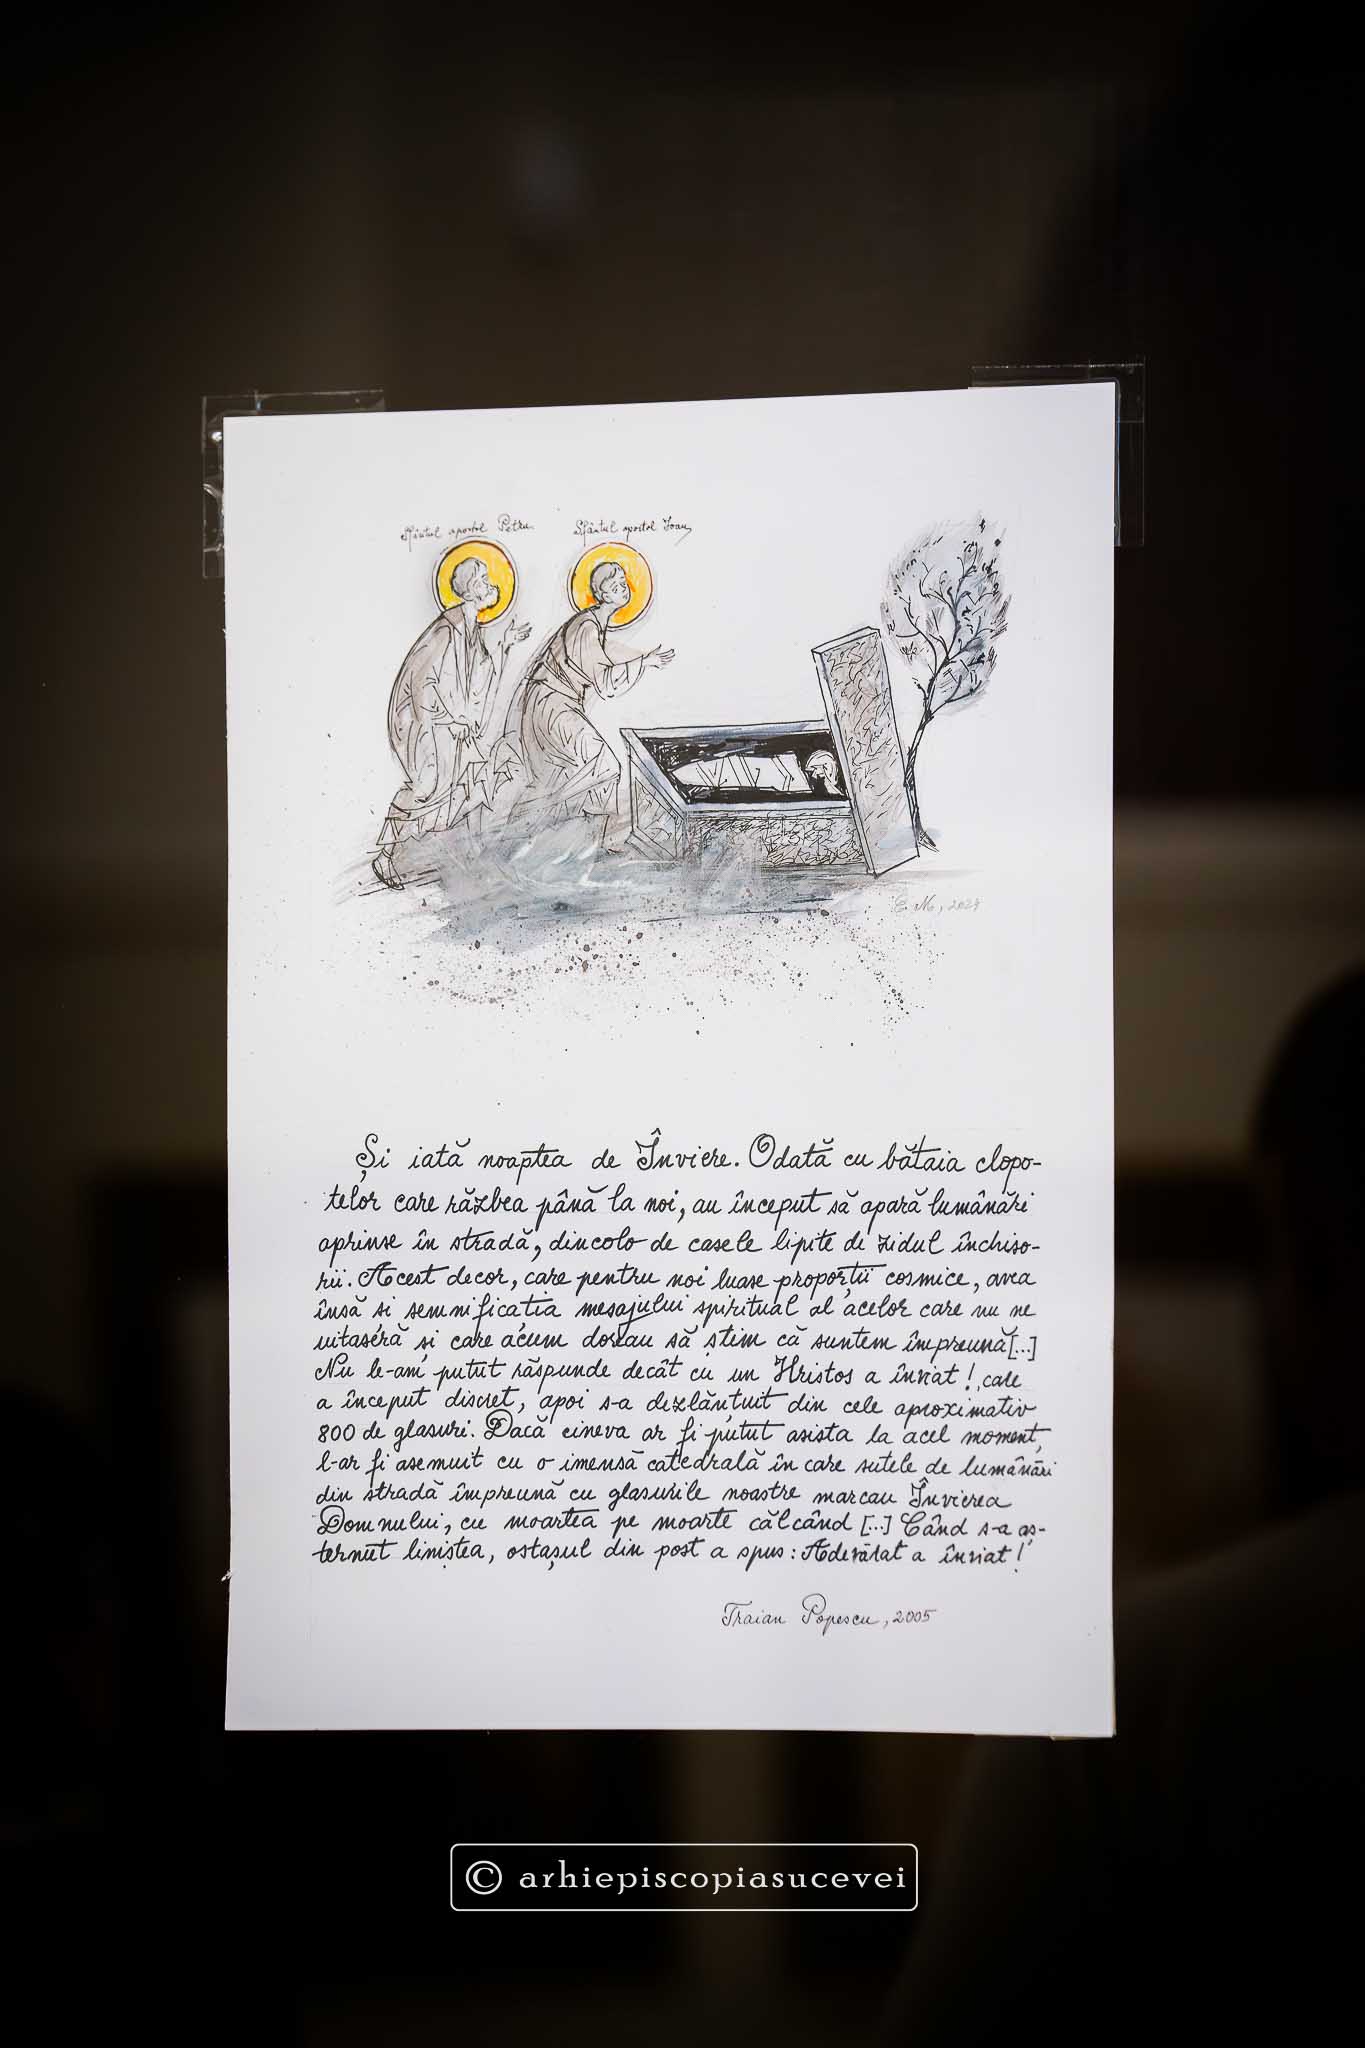 Sfântul apostol Petru
Sfântul apostol Ioan
E. M., 2024
Și iată noaptea de Înviere. Odată cu bătaia clopo-
telor care răzbea până la noi, au început să apară lumânări
aprinse în stradă, dincolo de casele lipite de zidul închiso-
rii. Acest decor, care pentru noi luase proporții cosmice, avea
însă și semnificația mesajului spiritual al acelor care nu ne
uitaseră și care acum doreau să știm că suntem împreună[...]
Nu le-am putut răspunde decât cu un Hristos a înviat!, care
a început discret, apoi s-a dezlănțuit din cele aproximativ
800 de glasuri. Dacă cineva ar fi putut asista la acel moment,
l-ar fi asemuit cu o imensă catedrală în care sutele de lumânări
din stradă împreună cu glasurile noastre marcau Învierea
Domnului, cu moartea pe moarte călcând [...] Când s-a aș-
ternut liniștea, ostașul din post a spus: Adevărat a înviat!
Traian Popescu, 2005
© arhiepiscopiasucevei